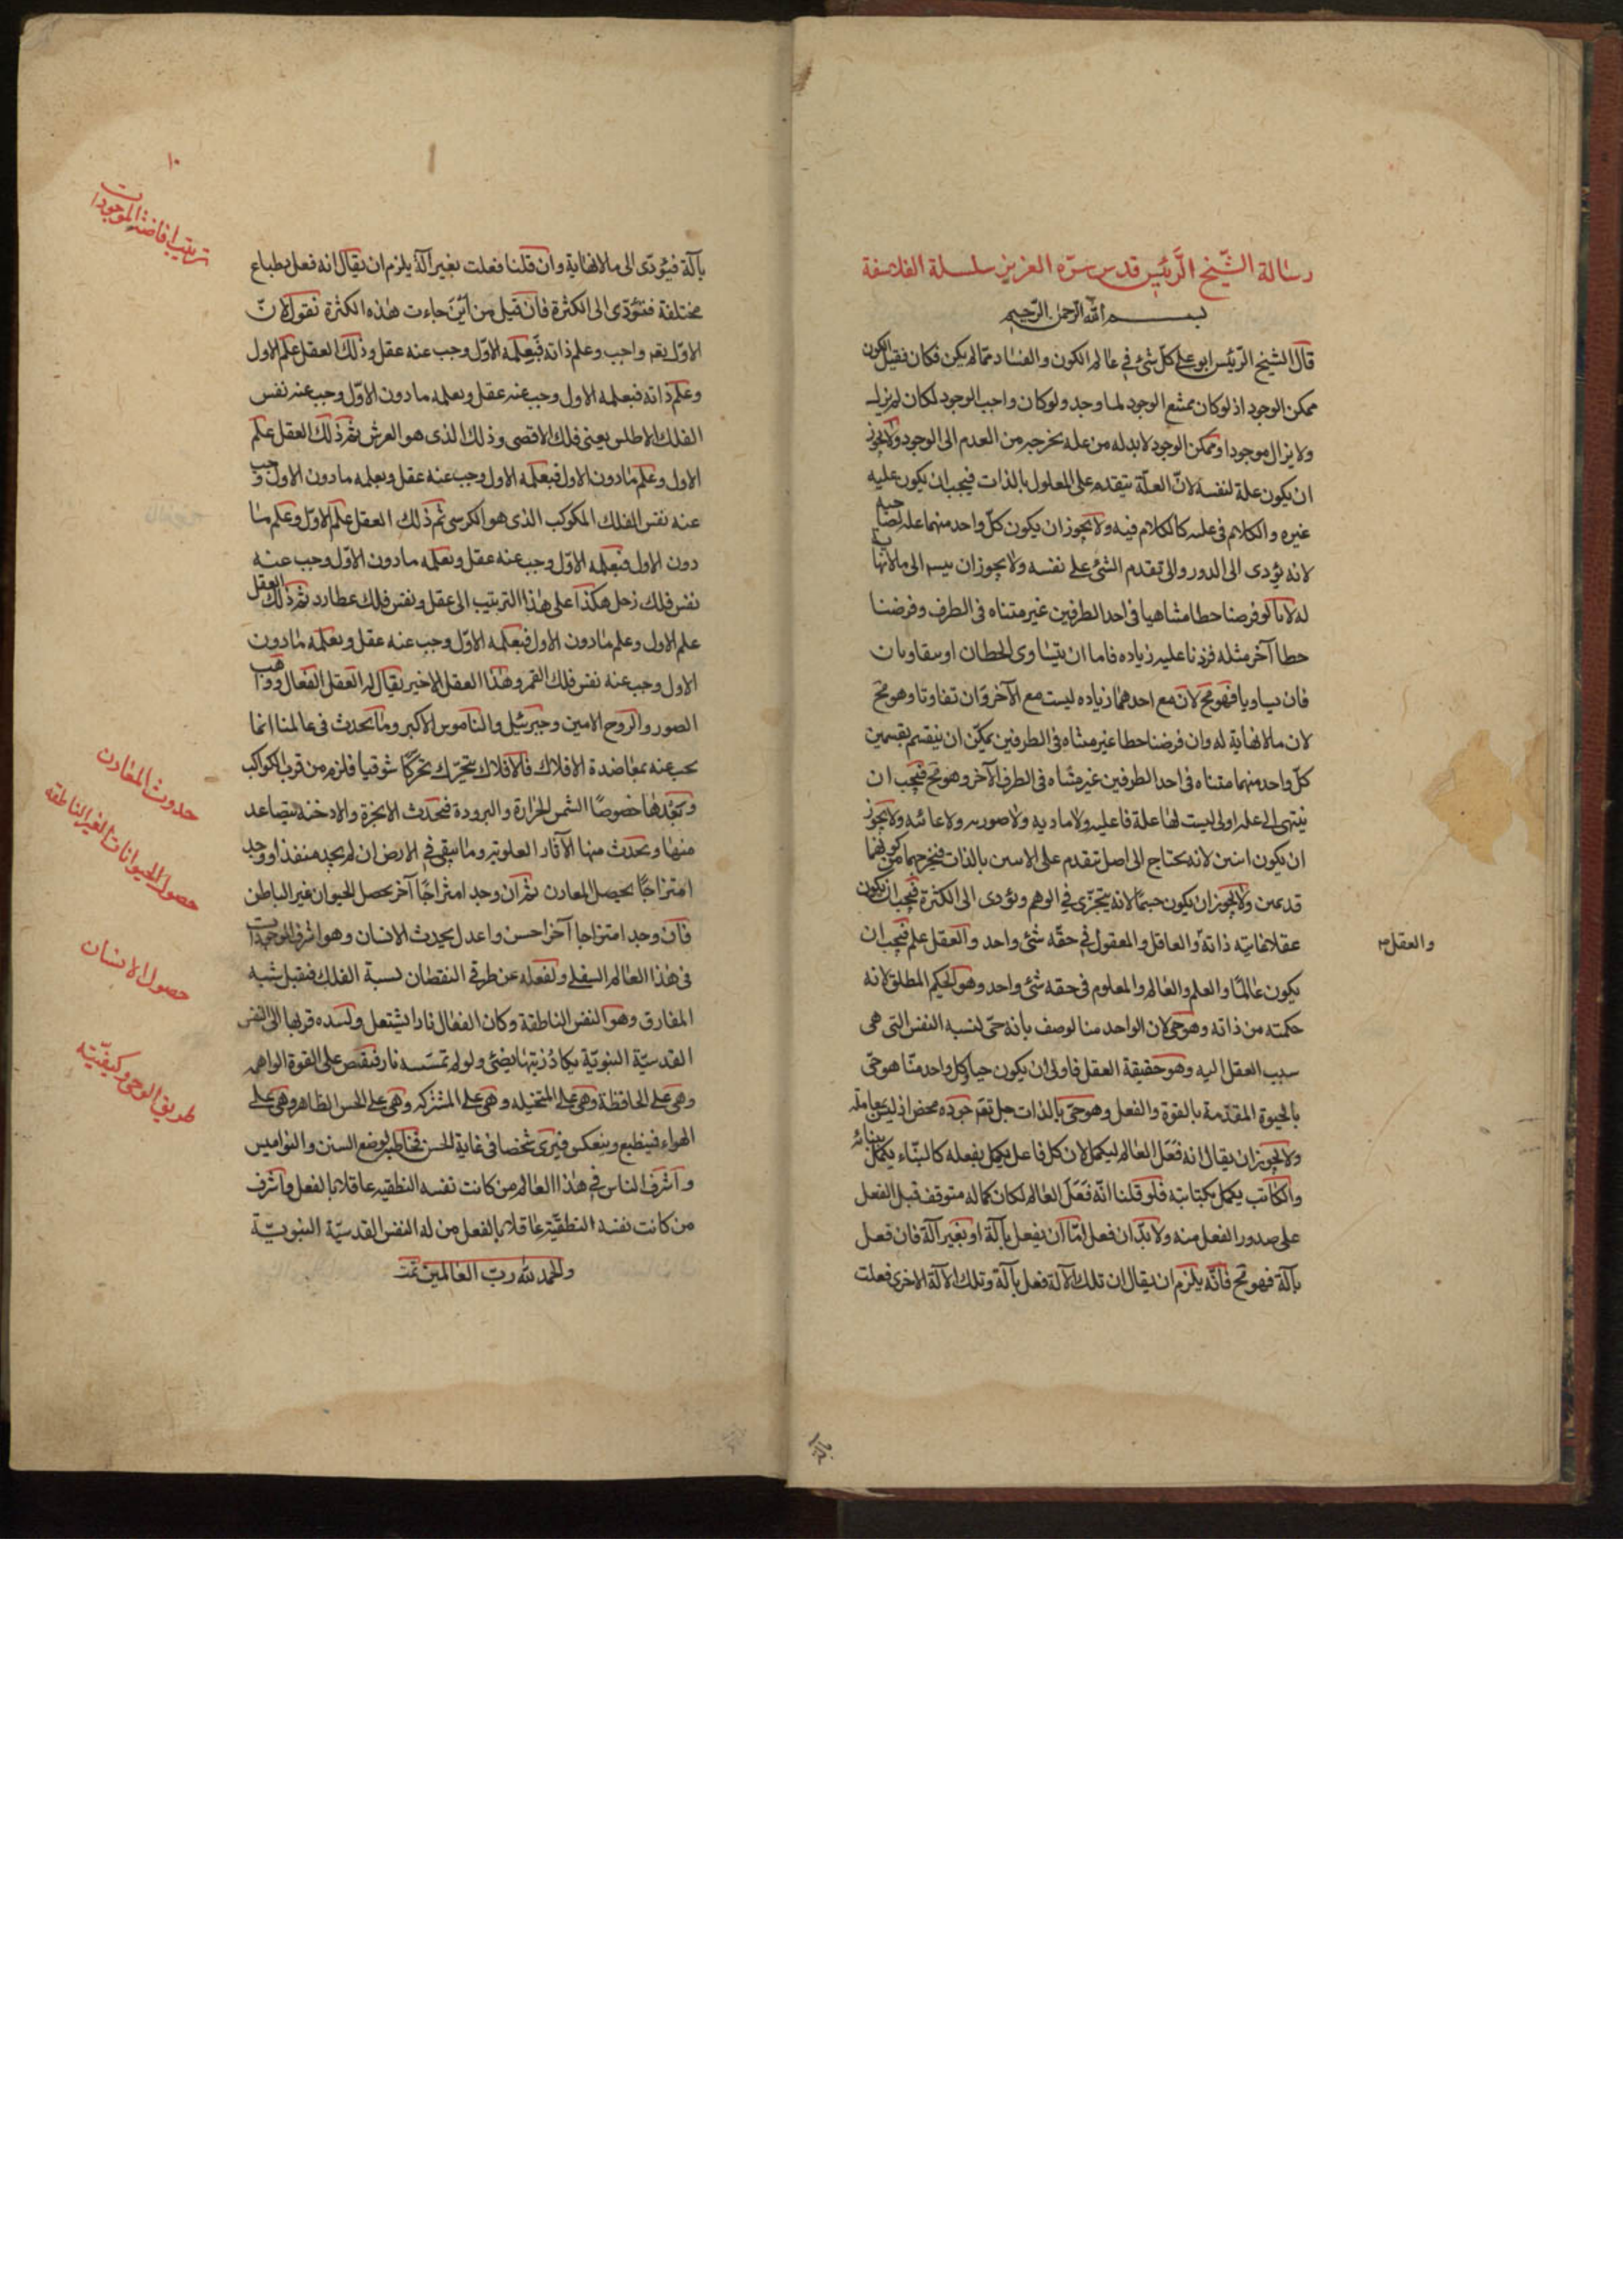 رسالة الشّيخ الرّئيس قدس سرّه العزيز سلسلة الفلاسفة
بسم الله الرّحمن الرّحيم
قال الشيخ الرّئيس ابو علي كلّ شئ في عالم الكون والفساد ممّا لم يكن فكان فقبل الكون
ممكن الوجود اذ لو كان ممتنع الوجود لما وجد ولو كان واجب الوجود لكان لم يزل
ولا يزال موجودا وممكن الوجود لا بد له من علة يخرجه من العدم الى الوجود ولا يجوز
ان يكون علة لنفسه لانّ العلّة يتقدم على المعلول بالذات فيجب ان يكون عليه
غيره والكلام فى علته كالكلام فيه ولا يجوز ان يكون كلّ واحد منهما علة
لانه يؤدى الى الدور والى تقدم الشئ على نفسه ولا يجوز ان الى ما لا نهاية
له لانا لو فرضنا خطا متناهيا فى احد الطرفين غير متناه فى الطرف وفرضنا
خطا آخر مثله فزدنا عليه زياده فاما ان يتساوى الخطان او يتفاوتان
فان تساويا فهو مح لان مع احدهما زياده ليست مع الآخر وان تفاوتا وهو مح
لان ما لا نهاية له وان فرضنا خطا غير متناه فى الطرفين يمكن ان ينقسم بقسمين
كلّ واحد منهما متناه فى احد الطرفين غير متناه فى الطرف الآخر وهو مح فيجب ان
ينتهى الى علة اولى ليست لها علة فاعليه ولا ماديه ولا صوريه ولا غائيه ولا يجوز
ان يكون اثنين لانه يحتاج الى اصل يتقدم على الاثنين بالذات فيخرجهما من كونهما
قديمين ولا يجوز ان يكون جسما لانه يتجزّى في الوهم ويؤدى الى الكثرة فيجب ان يكون
عقلا ذاته والعاقل والمعقول فى حقّه شئ واحد والعقل علم فيجب ان
والعقل
يكون عالمًا والعلم والعالم والمعلوم فى حقه شئ واحد وهو الحكيم المطلق لانه
حكمته من ذاته وهو حي لان الواحد منا لوصف بانه حىّ لنسبه النفس التى هى
سبب العقل اليه وهو حقيقة العقل فاولى ان يكون حيا وكل واحد منّا هو حىّ
بالحيوة المقدّمة بالقوة والفعل وهو حىّ بالذات جوده محض اذ ليس
ولا يجوز ان يقال انه فَعَل العالم ليكمل لان كل فاعل يكمل بفعله كالبنّاء يكمل ببنائه
والكاتب يكمل بكتابته فلو قلنا انّه فَعَلَ العالم لكان كماله متوقف قبل الفعل
على صدور الفعل منه ولا بدّ ان فعل امّا ان يفعل بآلة او بغير آلة فان فعل
بآلة فهو مح فانّه يلزم ان يقال ان تلك الآلة فعل بآلة وتلك الآلة الاخرى فعلت
١٠
ترتيب افاضة الموجودات
بآلة فيؤدّى الى ما لا نهاية وان قلنا فعلت بغير آلة يلزم ان يقال انه فعل بطباع
مختلفة فتؤدّى الى الكثرة فان قيل من اين جاءت هذه الكثرة نقول لانّ
الاوّل واجب وعلم ذاته فبعلمه الاوّل وجب عنه عقل وذلك العقل علم الاول
وعلم ذاته فبعلمه الاول وجب عنه عقل وبعلمه ما دون الاوّل وجب عنه نفس
الفلك الاطلس يعنى فلك الاقصى وذلك الذى هو العرش ثم ذلك العقل علم
الاول وعلم ما دون الاول فبعلمه الاول وجب عنه عقل وبعلمه ما دون الاول وجب
عنه نفس الفلك المكوكب الذى هو الكرسى ثم ذلك العقل علم الاوّل وعلم ما
دون الاول فبعلمه الاوّل وجب عنه عقل وبعلمه ما دون الاوّل وجب عنه
نفس فلك زحل هكذا على هذا الترتيب الى عقل ونفس فلك عطارد ثم ذلك العقل
علم الاول وعلم ما دون الاول فبعلمه الاوّل وجب عنه عقل وبعلمه ما دون
الاول وجب عنه نفس فلك القمر وهذا العقل الاخير يقال له العقل الفعال وواهب
الصور والروح الامين وجبرئيل والناموس الاكبر وما يحدث فى عالمنا انما
يجب عنه بمعاضدة الافلاك فالافلاك يتحرّك تحركًا شوقيا فلزم من قرب الكواكب
وبعدها خصوصًا الشمس الحرارة والبرودة فتحدث الابخرة والادخنة يتصاعد
حدوث المعادن
منها ويحدث منها الآثار العلويه وما يبقى فى الارض ان لم يجد منفذا ووجد
حصول الحيوانات الغير الناطقه
امتزاجًا يحصل المعادن ثم ان وجد امتزاجًا آخر يحصل الحيوان غير الناطق
فان وجد امتزاجا آخر احسن واعدل يحدث الانسان وهو اشرف الموجودات
حصول الانسان
فى هذا العالم السفلى عن طرفي النقصان لسبة الفلك فقبل شبه
المفارق وهو النفس الناطقة وكان الفعال نارا يشتعل قربها الى النفس
القدسيّة النبويّة يكاد زيتها يضئ ولو لم تمسسه نار فيقتص على القوة الواهمه
طريق الوحى وكيفيّته
وهى على الحافظة وهى على المتخيله وهى على المشتركه وهى على الحس الظاهر وهى على
الهواء فينطبع وينعكس فيرى شخصا فى غاية الحسن لوضع السنن والنواميس
واشرف الناس فى هذا العالم من كانت نفسه النطقيه عاقلا بالفعل واشرف
من كانت نفسه النطقيّة عاقلا بالفعل من له النفس القدسيّة النبويّة
والحمد لله ربّ العالمين تمت